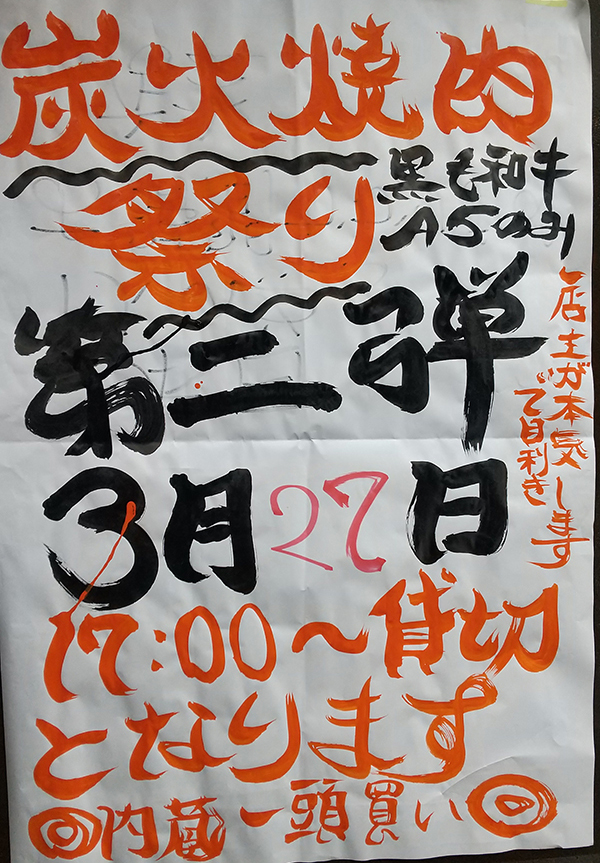 炭火焼肉
祭り
黒毛和牛
A5のみ
第二弾
店主が本気
で目利きします
3月27日
17:00〜貸切
となります
◎内蔵一頭買い◎